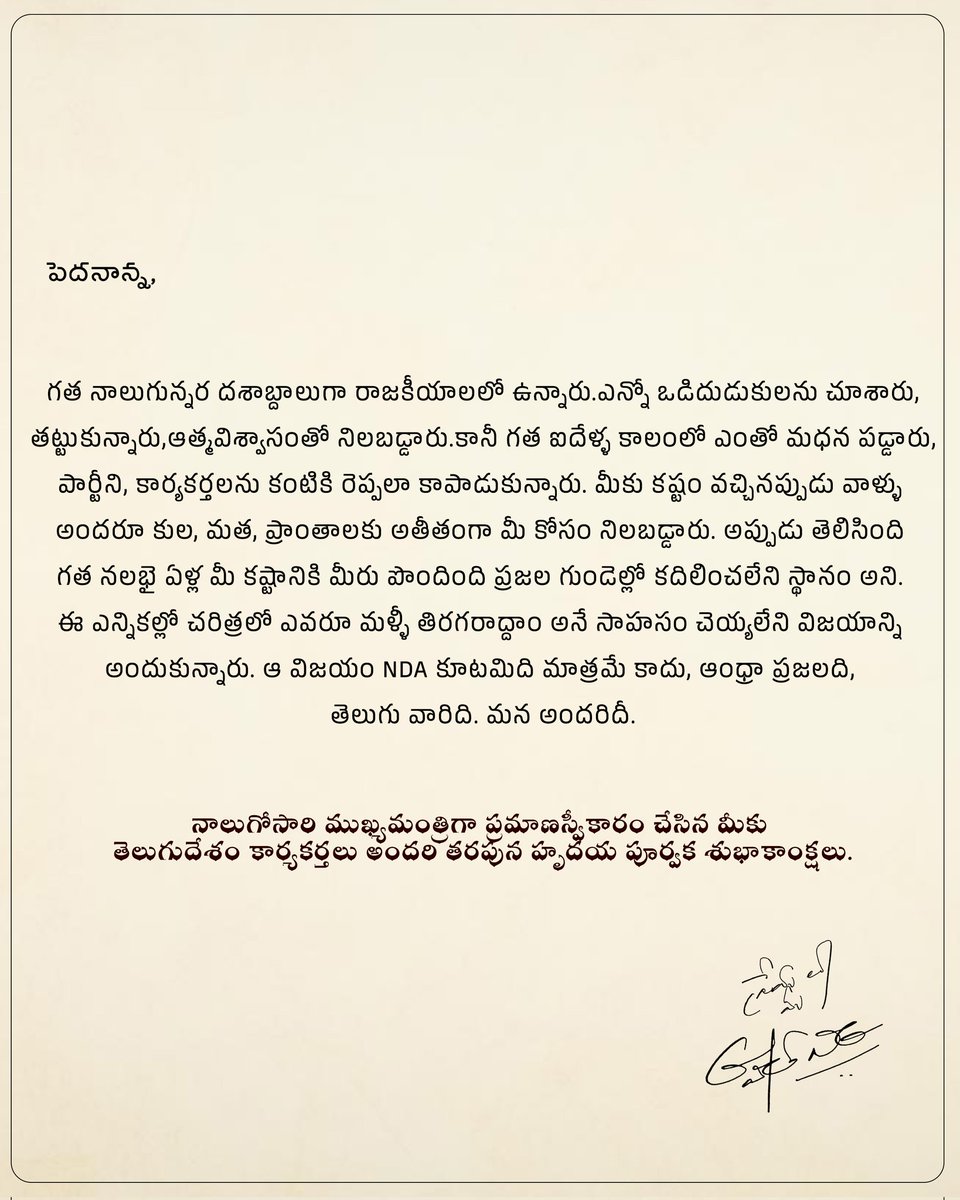 పెదనాన్న,
గత నాలుగున్నర దశాబ్దాలుగా రాజకీయాలలో ఉన్నారు.ఎన్నో ఒడిదుడుకులను చూశారు,
తట్టుకున్నారు,ఆత్మవిశ్వాసంతో నిలబడ్డారు.కానీ గత ఐదేళ్ళ కాలంలో ఎంతో మధన పడ్డారు,
పార్టీని, కార్యకర్తలను కంటికి రెప్పలా కాపాడుకున్నారు. మీకు కష్టం వచ్చినప్పుడు వాళ్ళు
అందరూ కుల, మత, ప్రాంతాలకు అతీతంగా మీ కోసం నిలబడ్డారు. అప్పుడు తెలిసింది
గత నలభై ఏళ్ల మీ కష్టానికి మీరు పొందింది ప్రజల గుండెల్లో కదిలించలేని స్థానం అని.
ఈ ఎన్నికల్లో చరిత్రలో ఎవరూ మళ్ళీ తిరగరాద్దాం అనే సాహసం చెయ్యలేని విజయాన్ని
అందుకున్నారు. ఆ విజయం NDA కూటమిది మాత్రమే కాదు, ఆంధ్రా ప్రజలది,
తెలుగు వారిది. మన అందరిదీ.
నాలుగోసారి ముఖ్యమంత్రిగా ప్రమాణస్వీకారం చేసిన మీకు
తెలుగుదేశం కార్యకర్తలు అందరి తరపున హృదయ పూర్వక శుభాకాంక్షలు.